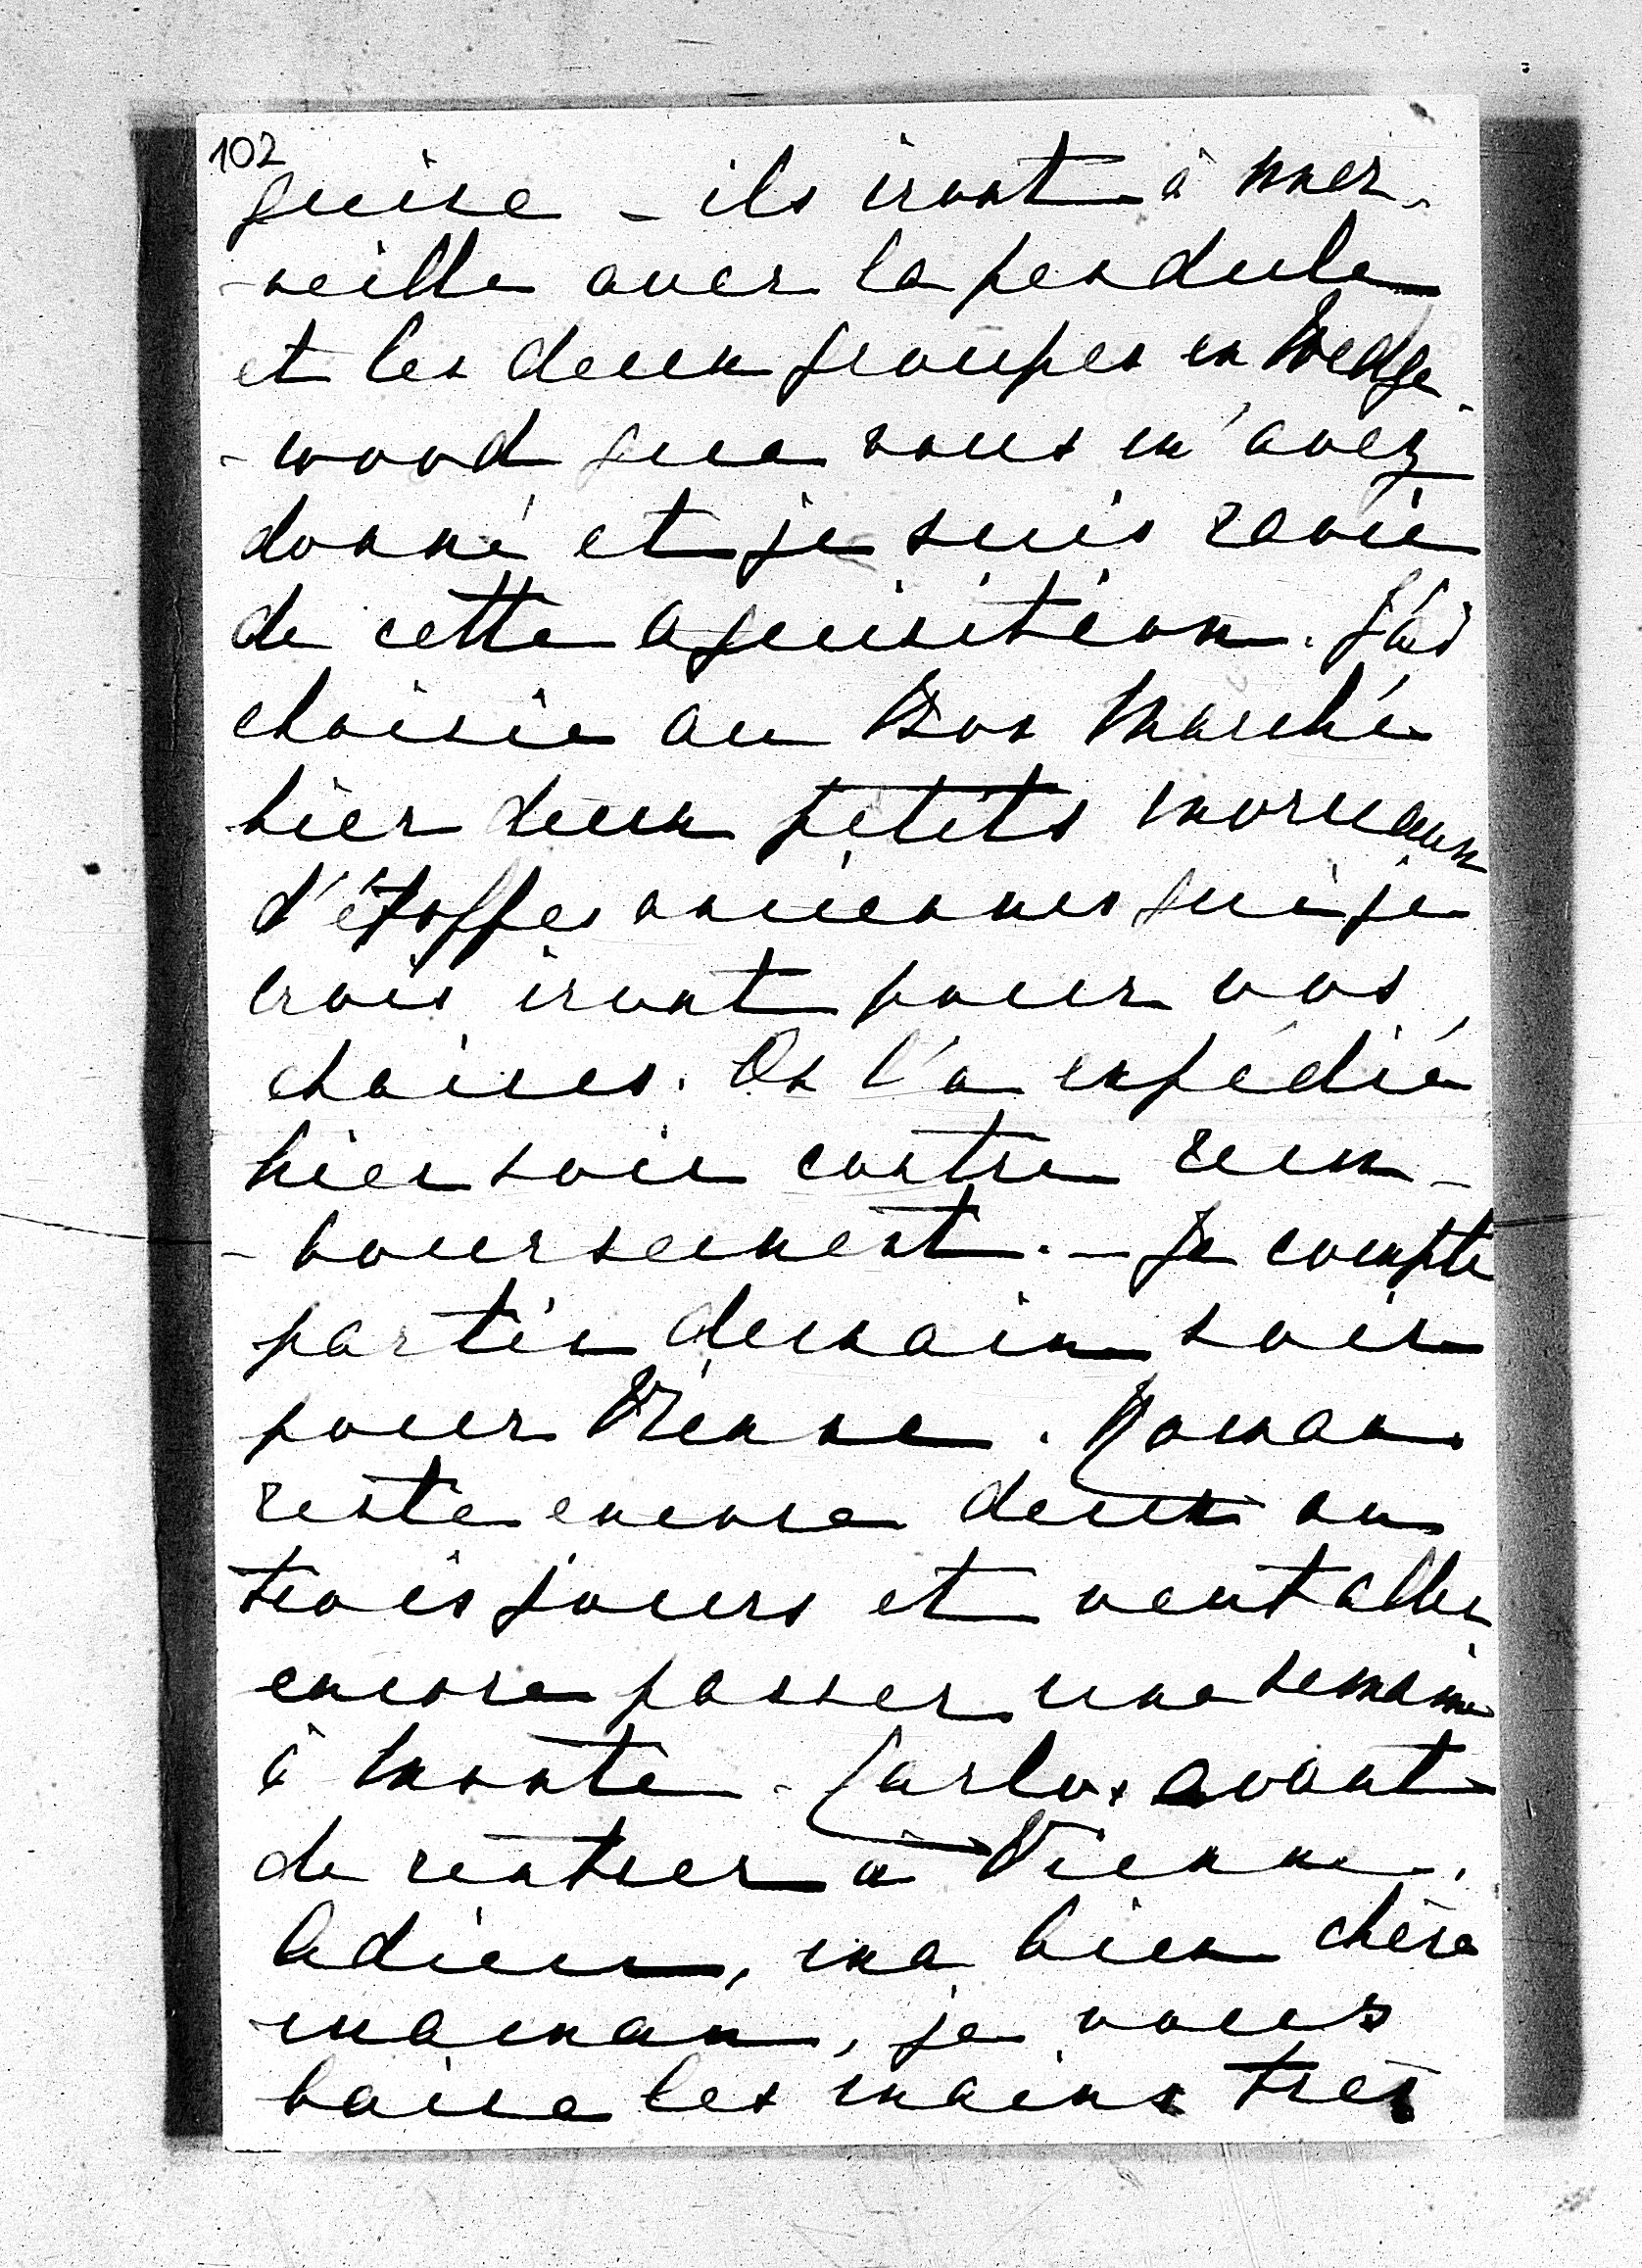 102
quise - ils iront à mer-
-veille avec la pendule
et les deux groupes en Wedge-
-wood que vous m'avez
donné et je suis ravie
de cette aquisition. J'ai
choisie au Bon Marché
hier deux petits morceaux
d'étoffes anciennes qui je
crois iront pour vos
chaises. On l'a expédié
hier soir contre rem-
-boursement. - Je compte
partir demain soir
pour Vienne. Roman
reste encore deux ou
trois jours et veut aller
encore passer une semaine
à Monte-Carlo avant
de rentrer à Vienne.
Adieu, ma bien chère
maman, je vous
baise les mains très